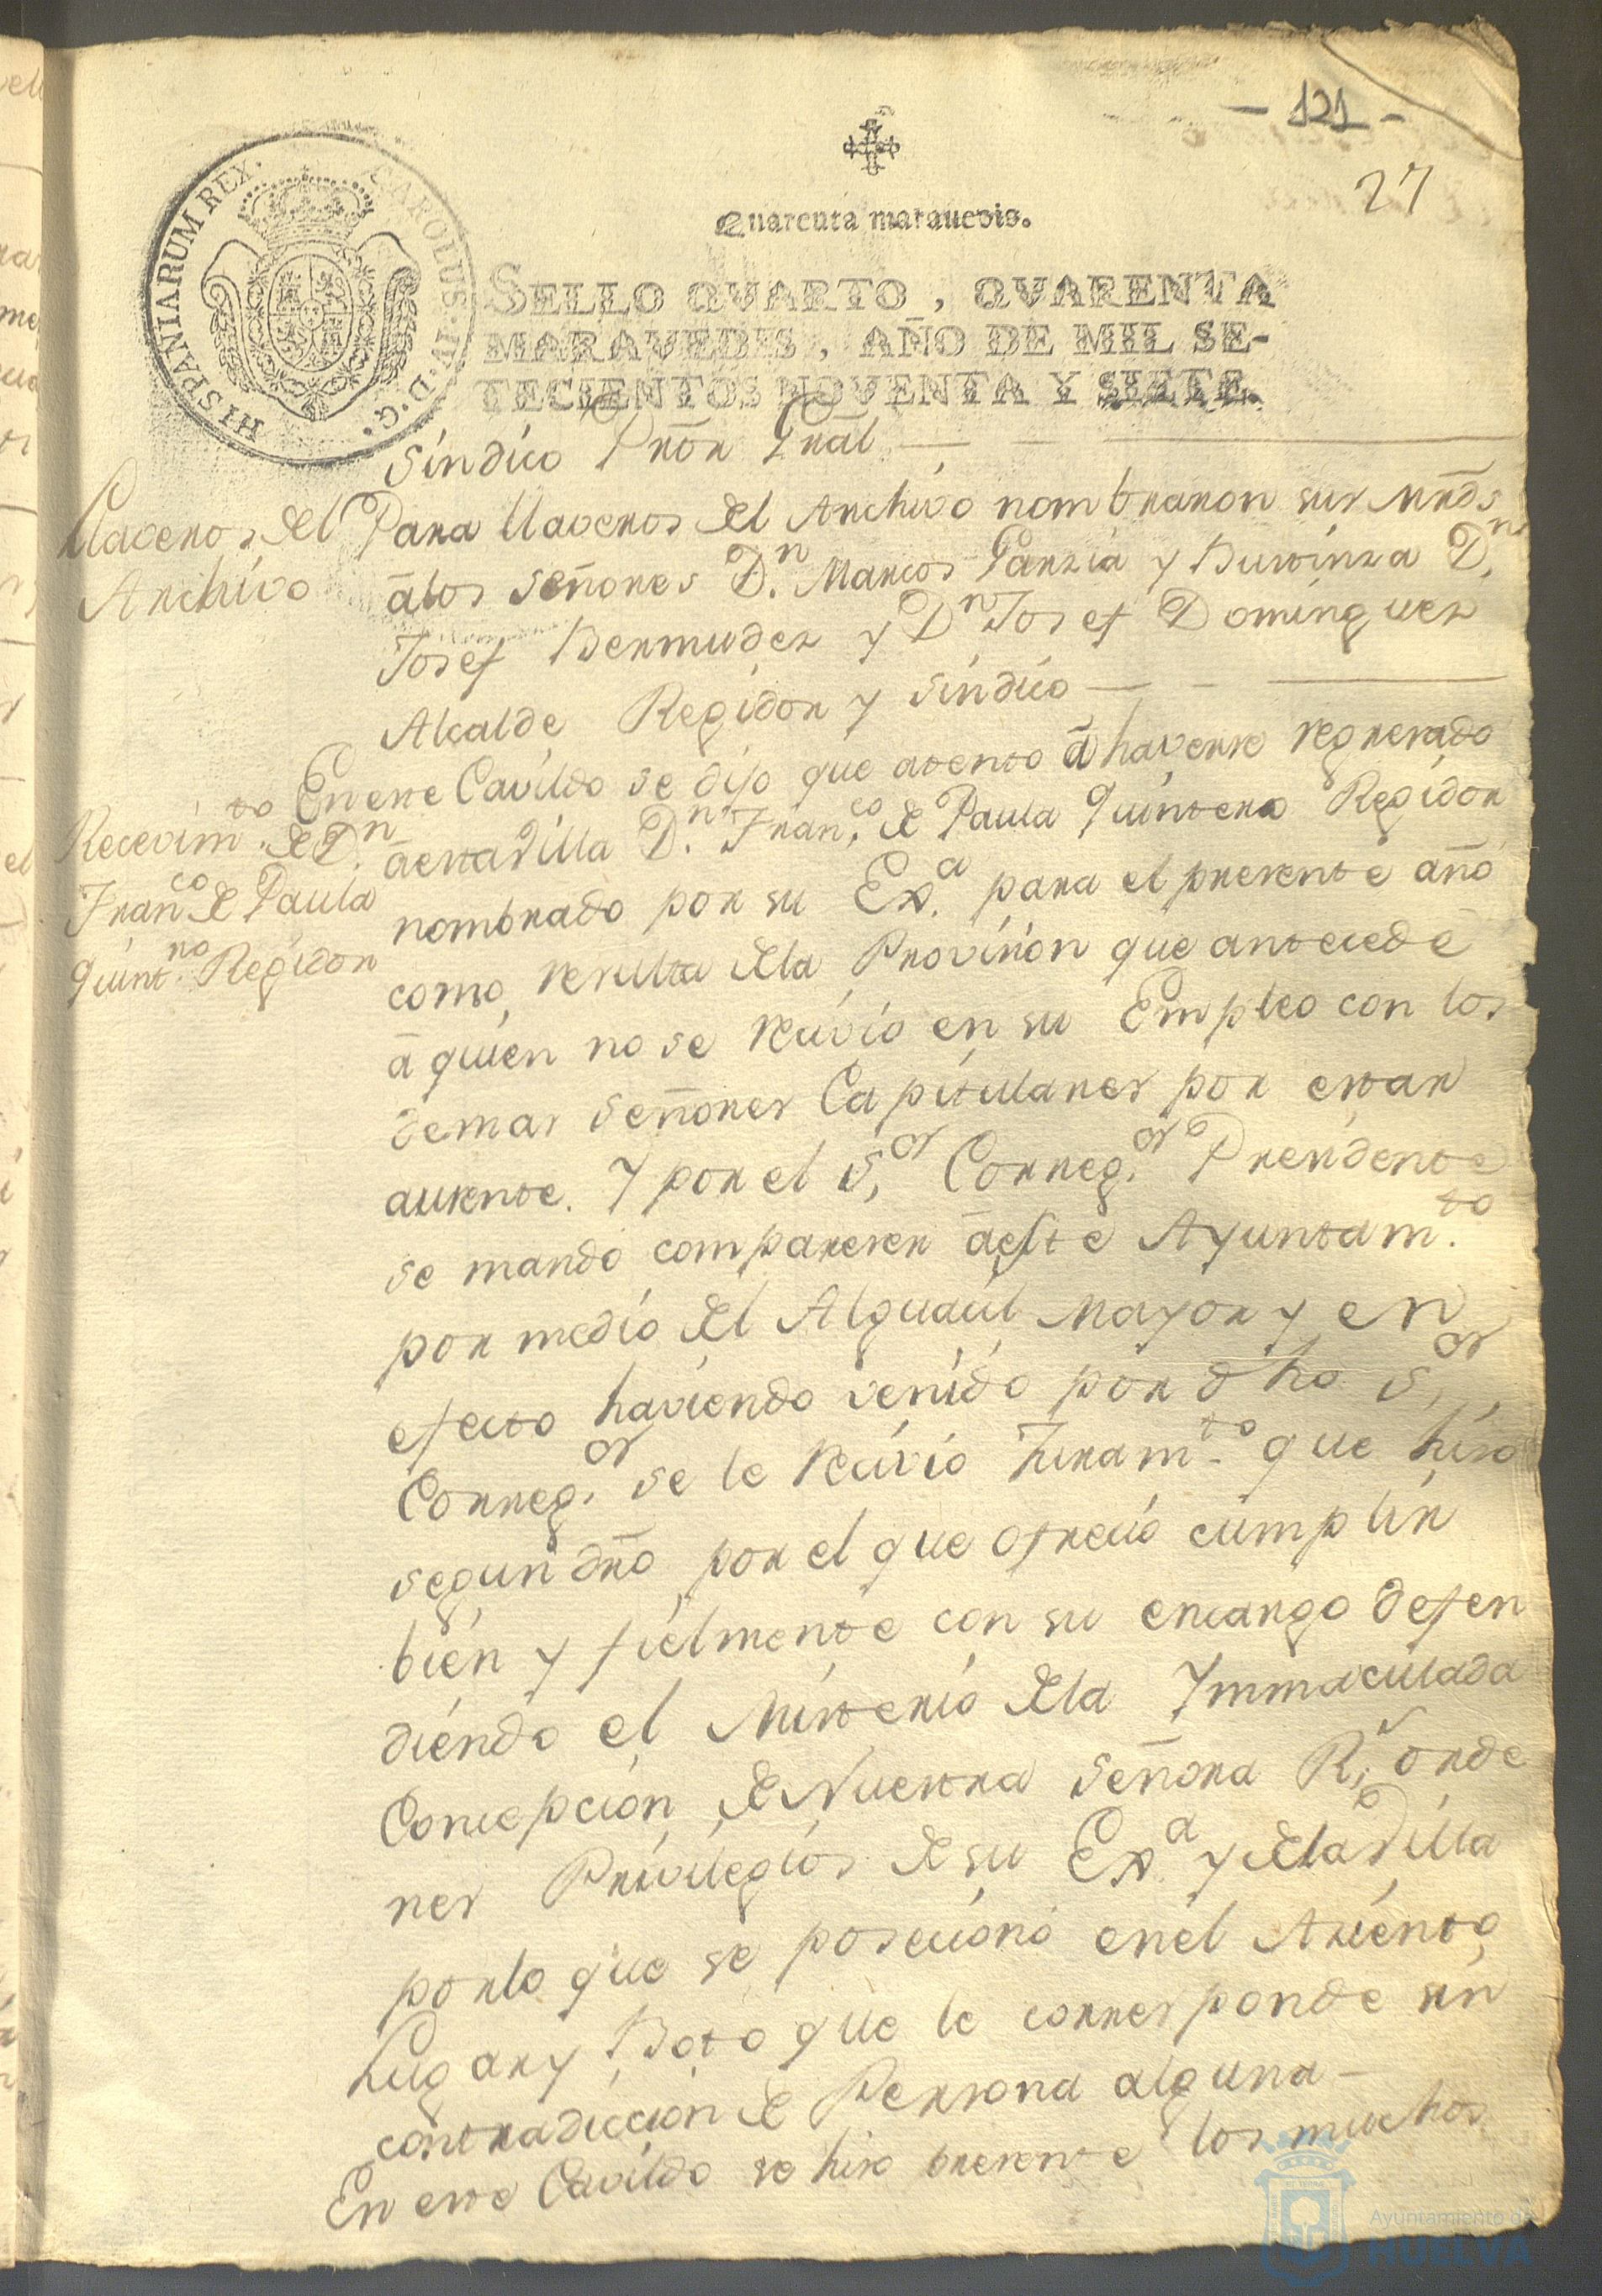 - 121 -
27
Quarenta marauedis.
HISPANIARUM REX. CAROLUS. IV. D. G.
SELLO QVARTO, QVARENTA
MARAVEDIS, AÑO DE MIL SE-
TECIENTOS NOVENTA Y SIETE.
Sindico Prõr Grãl
Claveros del
Archivo
Para llaveros del Archivo nombraron sus mrds
a los señores Dn. Marcos Garzia y Dn.
Josef Bermudez y Dn Josef Dominguez
Alcalde Regidor y Sindico
Recevimto. de Dn.
Franco de Paula
Quintno. Regidor
En ese Cavildo se dijo que atento a haverse regresado
a esta Villa Dn. Franco. de Paula Quintero Regidor
nombrado por su Exa. para el presente año
como resulta de la Provision que antecede
a quien no se recivio en su Empleo con los
demas señores Capitulares por estar
ausente. Y por el Sor. Correg.or Presidente
se mando comparecer a este Ayuntamto.
por medio del Alguacil mayor y en
efecto haviendo venido por dho Sor.
Correg.or se le recivio Juramto. que hizo
segun dro por el que ofrecio cumplir
bien y fielmente con su encargo defen
diendo el Misterio de la Immaculada
Concepcion de Nuestra Señora Rs. orde
nes Privilegios de su Exa. y de la Villa
por lo que se posecionó en el Asiento
Lugar y Boto que le corresponde sin
contradiccion de Persona alguna
En este Cavildo se hizo presente los muchos
Ayuntamiento de
HUELVA